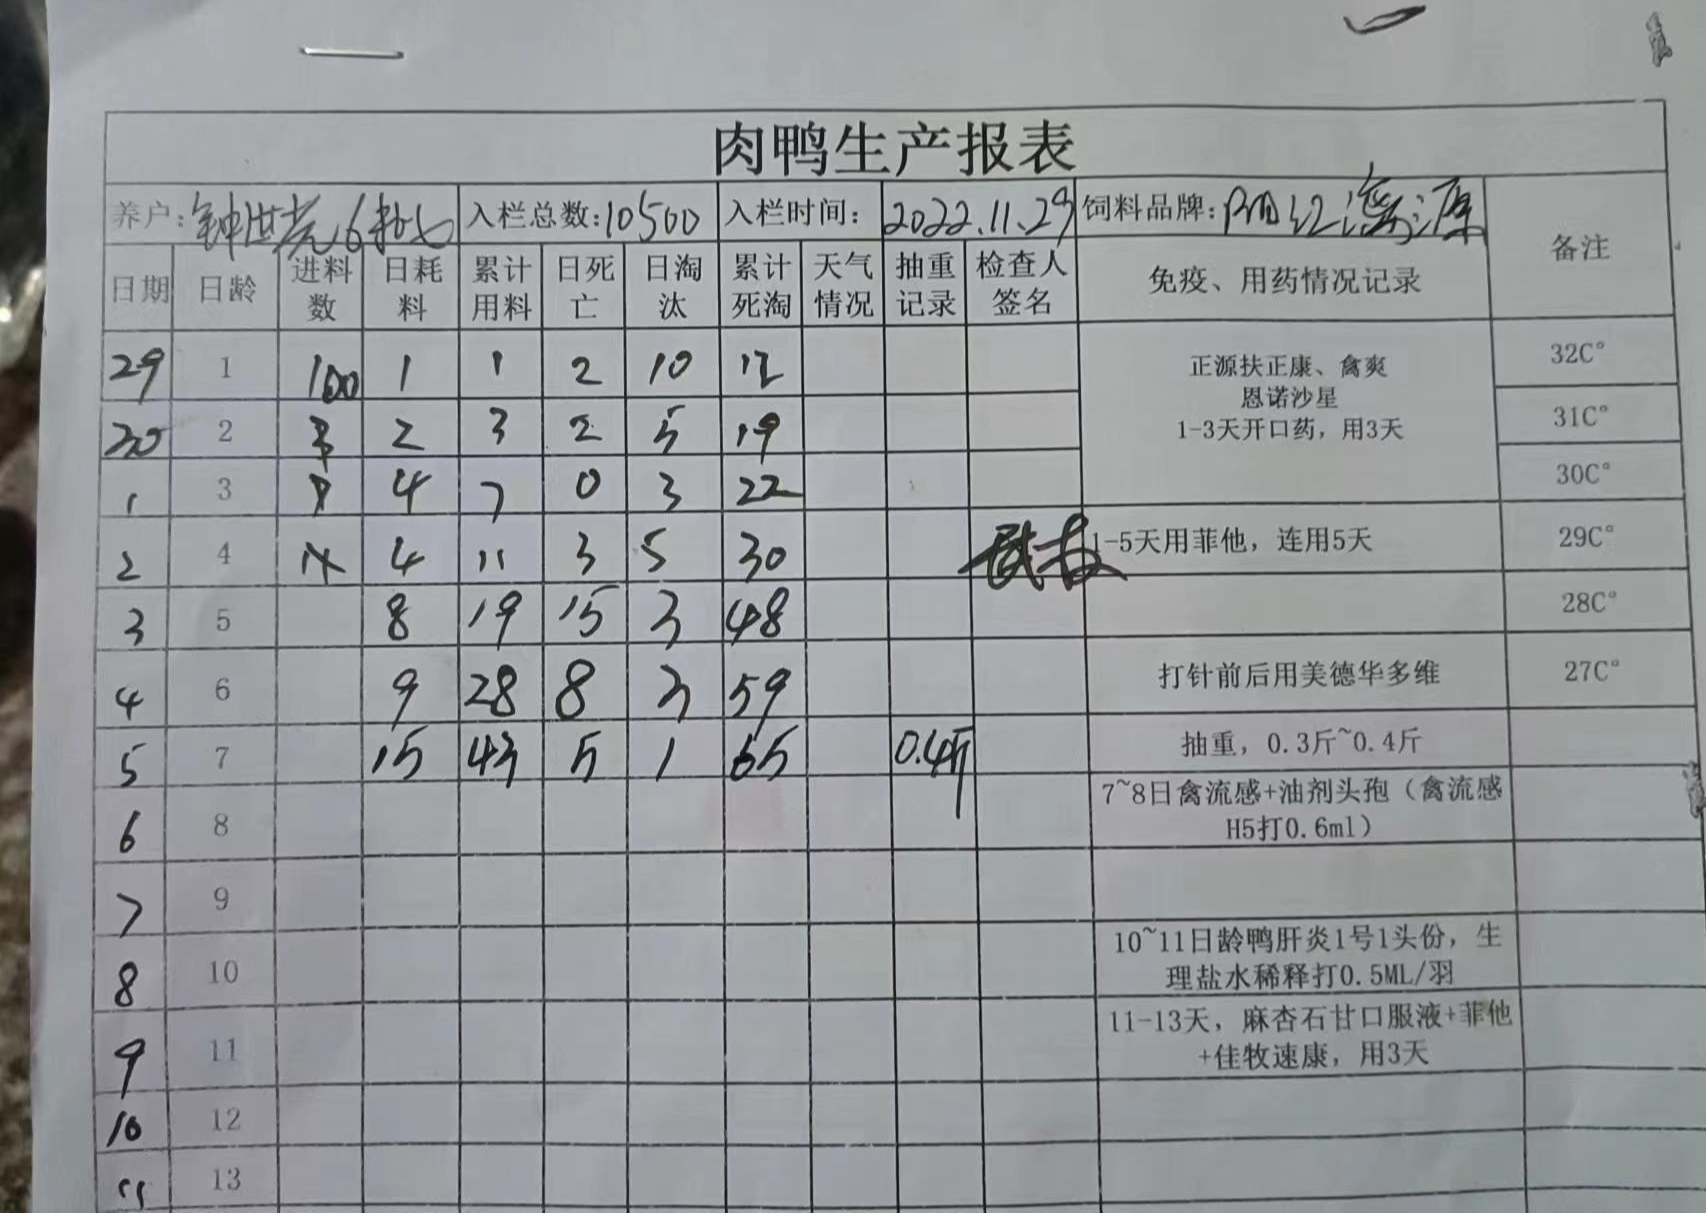 肉鸭生产报表
养户: 入栏总数:10500 入栏时间: 2022.11.29 饲料品牌:阳江 备注
日期 日龄 进料数 日耗料 累计用料 日死亡 日淘汰 累计死淘 天气情况 抽重记录 检查人签名 免疫、用药情况记录
29 1 100 1 1 2 10 12 正源扶正康、禽爽 32C°
恩诺沙星
30 2 2 3 2 5 19 1-3天开口药，用3天 31C°
1 3 4 7 0 3 22 30C°
2 4 4 11 3 5 30 1-5天用菲他，连用5天 29C°
3 5 8 19 15 3 48 28C°
4 6 9 28 8 3 59 打针前后用美德华多维 27C°
5 7 15 43 5 1 65 0.4斤 抽重，0.3斤~0.4斤
6 8 7~8日禽流感+油剂头孢（禽流感
H5打0.6ml）
7 9
8 10 10~11日龄鸭肝炎1号1头份，生
理盐水稀释打0.5ML/羽
9 11 11-13天，麻杏石甘口服液+菲他
+佳牧速康，用3天
10 12
11 13